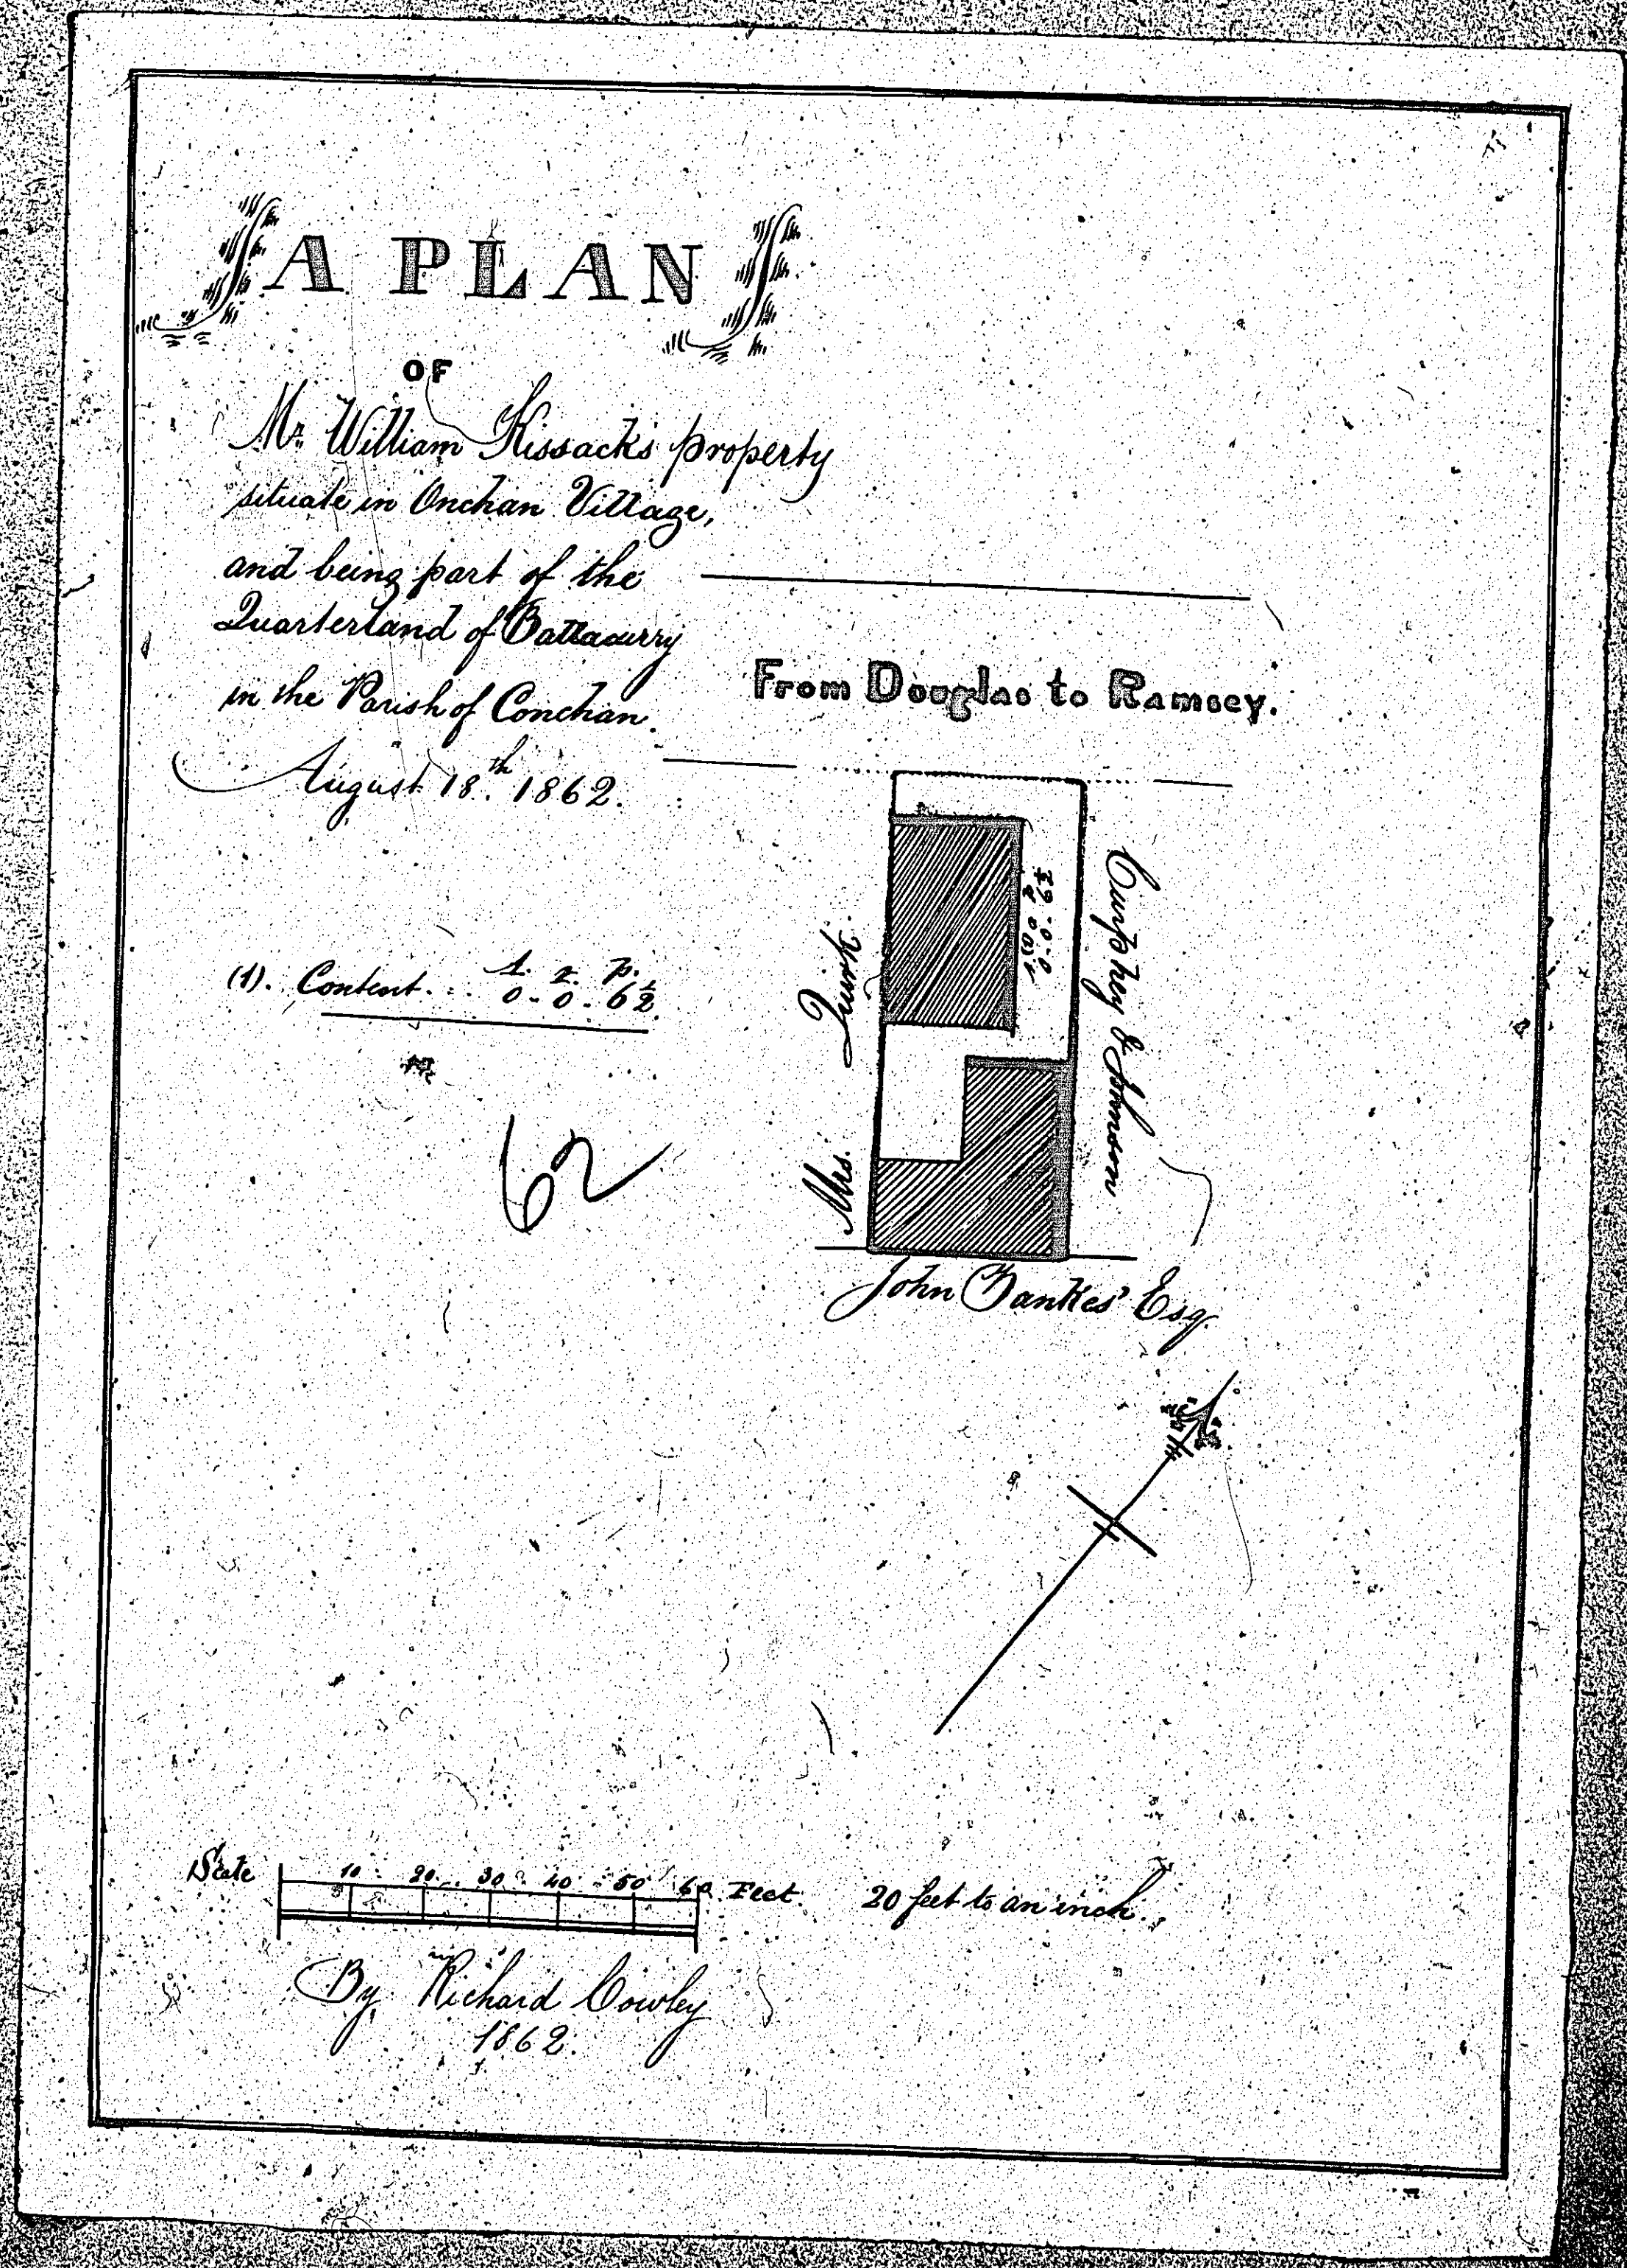 A PLAN
OF
Mr. William Kissack's property
situate in Onchan Village,
and being part of the
Quarterland of Ballacurry
in the Parish of Conchan.
August 18th. 1862.
From Douglas to Ramsey.
(1). Content... A. r. p.
0 - 0 - 6½
62
Mrs. Quirk.
A. r. p.
0 - 0 - 6½
Curphey & Johnson
John Bankes' Esq.
Scale 10 20 30 40 50 60 Feet. 20 feet to an inch.
By Richard Cowley
1862.